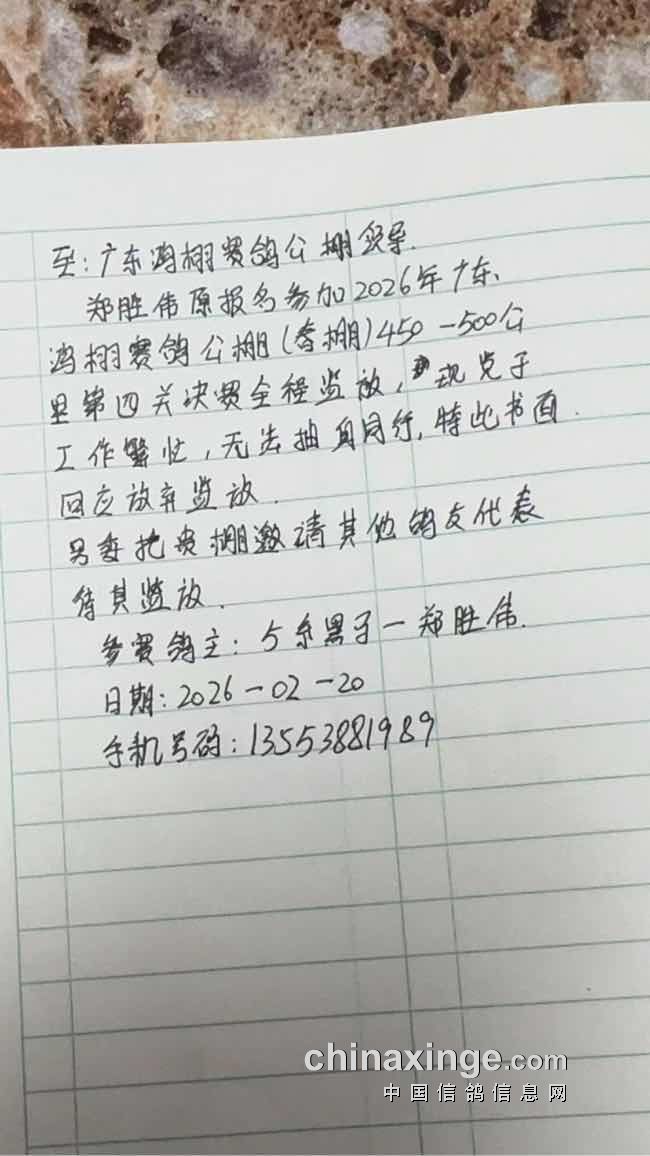 至:广东鸿栩赛鸽公棚领导.
郑胜伟原报名参加2026年广东
鸿栩赛鸽公棚(春棚)450-500公
里第四关决赛全程监放,现见于
工作繁忙,无法抽身同行,特此书面
回应放弃监放.
另委托贵棚邀请其他鸽友代表
替其监放.
参赛鸽主:5系黑子-郑胜伟.
日期:2026-02-20
手机号码:13553881989
chinaxinge.com
中国信鸽信息网